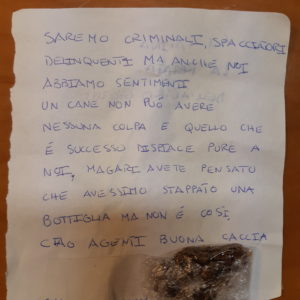 SAREMO CRIMINALI, SPACCIATORI
DELINQUENTI MA ANCHE NOI
ABBIAMO SENTIMENTI
UN CANE NON PUÒ AVERE
NESSUNA COLPA E QUELLO CHE
É SUCCESSO DISPIALE PURE A
NOI, MAGARI AVETE PENSATO
CHE AVESSIMO STAPPATO UNA
BOTTIGLIA MA NON É COSÌ,
CIAO AGENTI BUONA CACCIA